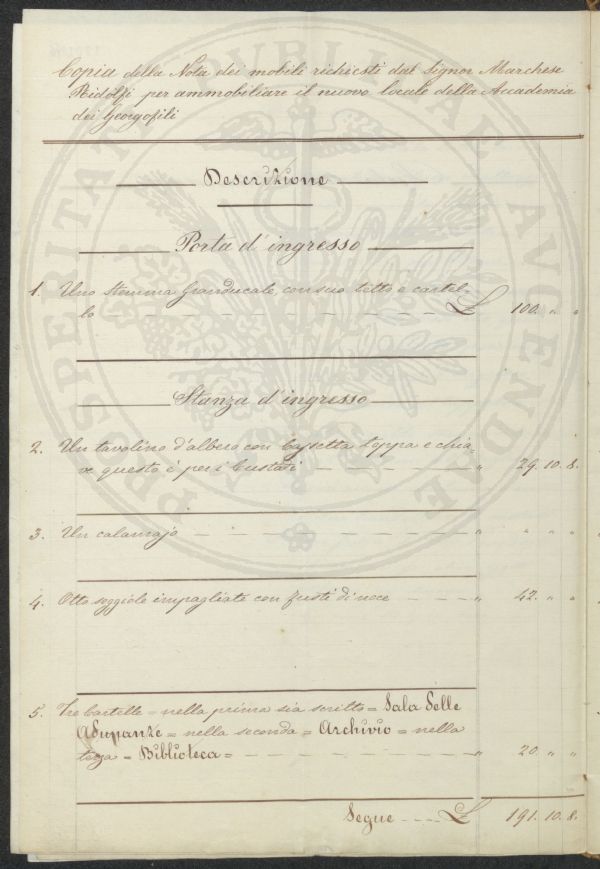 Copia della Nota dei mobili richiesti dal Signor Marchese
Ridolfi per ammobiliare il nuovo locale della Accademia
dei Georgofili
Descrizione
Porta d'ingresso
1. Uno Stemma Granducale, con suo tetto e cartel-
lo £ 100. " "
Stanza d'ingresso
2. Un tavolino d'albero con Cassetta toppa e chia-
ve questo è per i Custodi " 29. 10. 8.
3. Un calamajo " " " "
4. Otto seggiole impagliate con fusti di noce " 42. " "
5. Tre Cartelle = nella prima sia scritto = Sala delle
Adunanze = nella seconda = Archivio = nella
terza = Biblioteca = " 20. " "
Segue £ 191. 10. 8.
PROSPERITATI PUBLICAE AUGENDAE